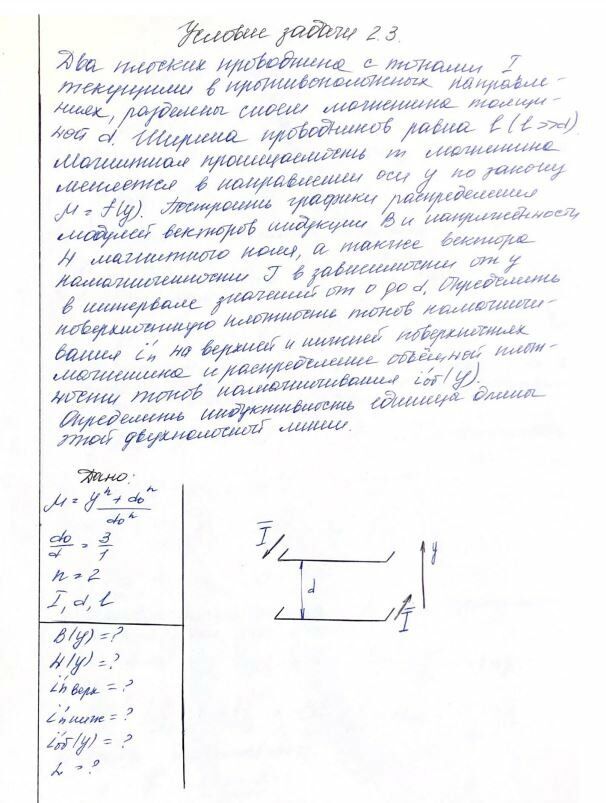 Условие задачи 2.3.
Два плоских проводника с токами I
текущими в противоположных направле-
ниях, разделены слоем магнетика толщи-
ной d. Ширина проводников равна b (b >> d)
Магнитная проницаемость μ магнетика
меняется в направлении оси y по закону
μ = f(y). Построить графики распределения
модулей векторов индукции B и напряженности
H магнитного поля, а также вектора
намагниченности J в зависимости от y
в интервале значений от 0 до d. Определить
поверхностную плотность токов намагничи-
вания i'n на верхней и нижней поверхностях
магнетика и распределение объёмной плот-
ности токов намагничивания i'об(y).
Определить индуктивность единицы длины
этой двухполосной линии.
Дано:
μ = (yⁿ + d₀ⁿ) / d₀ⁿ
d₀/d = 3/1
n = 2
I, d, b
B(y) = ?
H(y) = ?
i'n верх = ?
i'n ниж = ?
i'об(y) = ?
L = ?
I
y
d
I